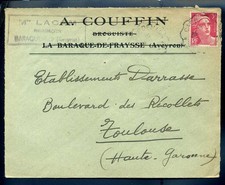 A. COUFFIN
DROGUISTE
LA BARAQUE-DE-FRAYSSE (Aveyron)
Etablissements Darrasse
Boulevard des Récollets
Toulouse
(Haute-Garonne)